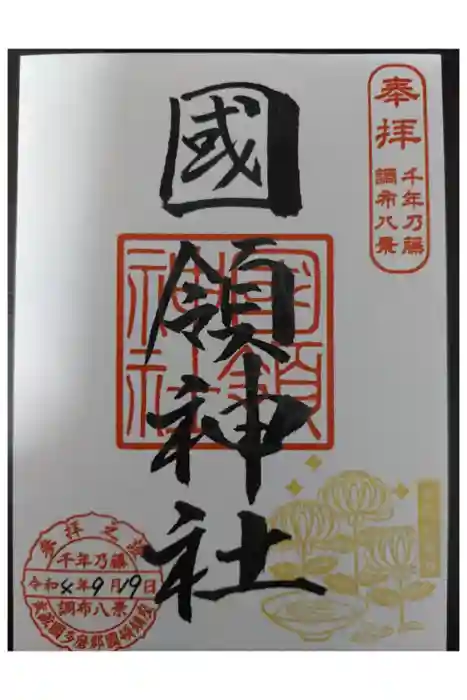 奉拝
千年乃藤
調布八景
國領神社
國領
神社
參拝之証
千年乃藤
令和4年9月19日
調布八景
武蔵國多磨郡國領鎮役